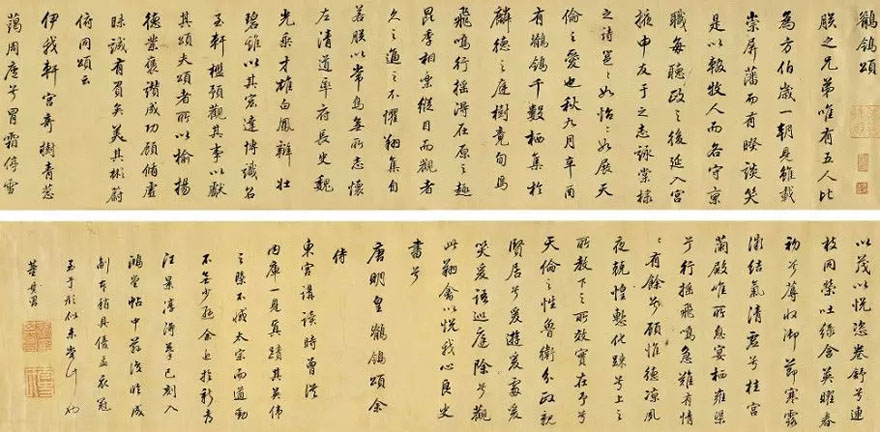 鶺鴒頌
朕之兄弟唯有五人比
為方伯歲一朝見雖載
崇屏藩而有暌談笑
是以輟牧人而各守京
職每聽政之後延入宮
掖申友于之志詠棠棣
之詩邕〻如怡〻如展天
倫之愛也秋九月辛酉
有鶺鴒千數栖集於
麟德之庭樹竟旬焉
飛鳴行搖得在原之趣
昆季相樂縱目而觀者
久之逼之不懼翔集自
若朕以常鳥無所志懷
左清道率府長史魏
光乘才雄白鳳辯壯
碧雞以其宏達博識召
至軒檻預觀其事以獻
其頌夫頌者所以揄揚
德業褒讚成功顧循虛
昧誠有負矣美其彬蔚
俯同頌云
伊我軒宮奇樹青葱
藹周廬兮冒霜停雪
以茂以悅恣卷舒兮連
枝同榮吐綠含英曜春
初兮蓐收御節寒露
微結氣清虛兮桂宮
蘭殿唯所息宴栖雍渠
兮行搖飛鳴急難有情
〻有餘兮顧惟德涼夙
夜兢惶慙化疎兮上之
所教下之所效實在予兮
天倫之性魯衛分政親
賢居兮爰遊爰處爰
笑爰語巡庭除兮觀
此翔禽以悅我心良史
書兮
唐明皇鶺鴒頌余
侍
東宮講讀時曾從
內庫一見真蹟其英偉
之槩不愧太宗而遒勁
不無少遜余近於新安
汪景淳得摹已刻入
鴻堂帖中茲復臨成
副本稍具優孟衣冠
至于形似未嘗計也
董其昌